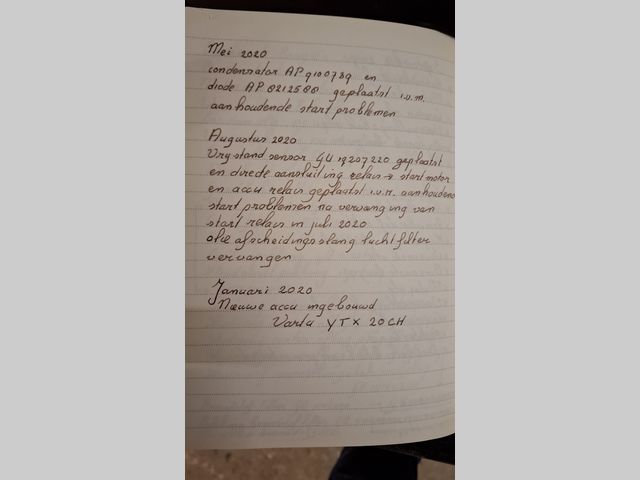 Mei 2020
condensator AP 9100789 en
diode AP 8212588 geplaatst i.v.m.
aanhoudende start problemen
Augustus 2020
Vrystand sensor GU 19207220 geplaatst
en directe aansluiting relais → startmotor
en accu relais geplaatst i.v.m. aanhoudend
start problemen na vervanging van
start relais in juli 2020
olie afscheidingsslang luchtfilter
vervangen
Januari 2020
Nieuwe accu ingebouwd
Varta YTX 20CH